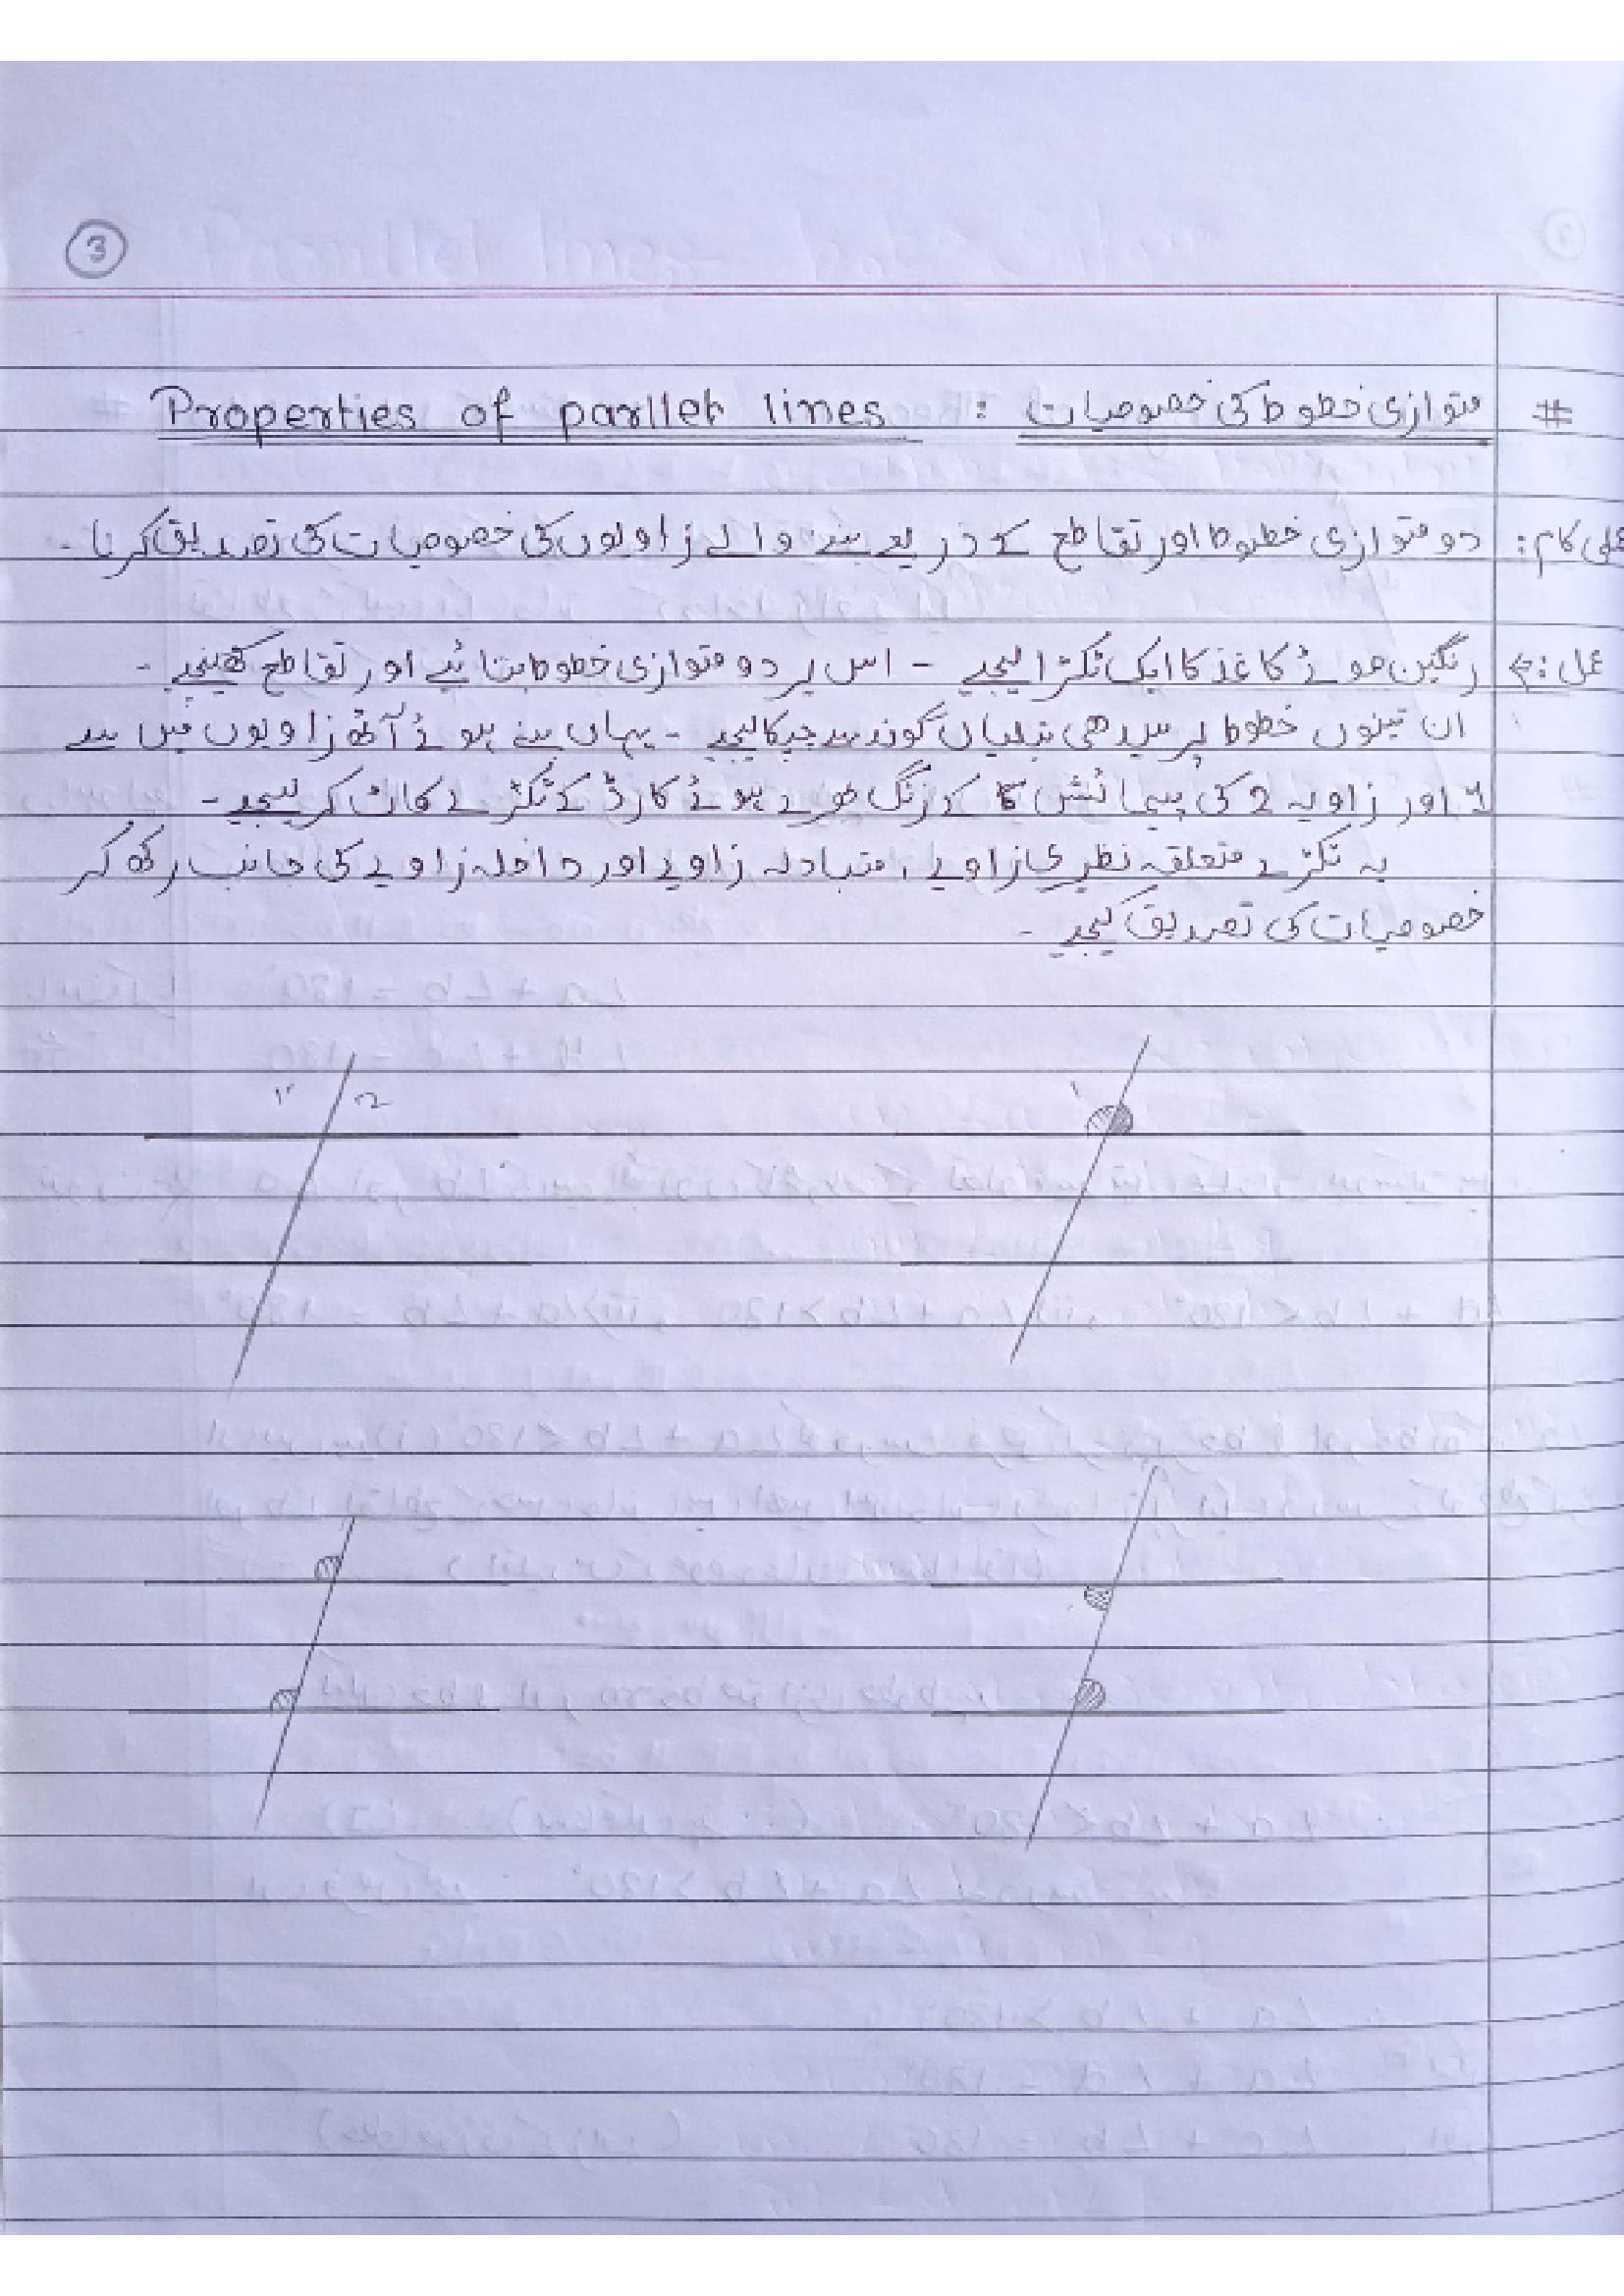 3
# متوازی خطوط کی خصوصیات : Properties of parllel lines
عملی کام : دو متوازی خطوط اور تقاطع کے ذریعے بننے والے زاویوں کی خصوصیات کی تصدیق کرنا ۔
عمل : رنگین موٹے کاغذ کا ایک ٹکڑا لیجیے ۔ اس پر دو متوازی خطوط بنائیے اور تقاطع کھینچیے ۔
ان تینوں خطوط پر سیدھی تیلیاں گوند سے چپکا لیجیے ۔ یہاں بنے ہوئے آٹھ زاویوں میں سے
1 اور زاویہ 2 کی پیمائش کا کے رنگ بھرے ہوئے کارڈ کے ٹکڑے کاٹ کر لیجیے ۔
یہ ٹکڑے متعلقہ نظیری زاویے ، متبادلہ زاویے اور داخلہ زاویے کی جانب رکھ کر
خصوصیات کی تصدیق کیجیے ۔
1 2 1